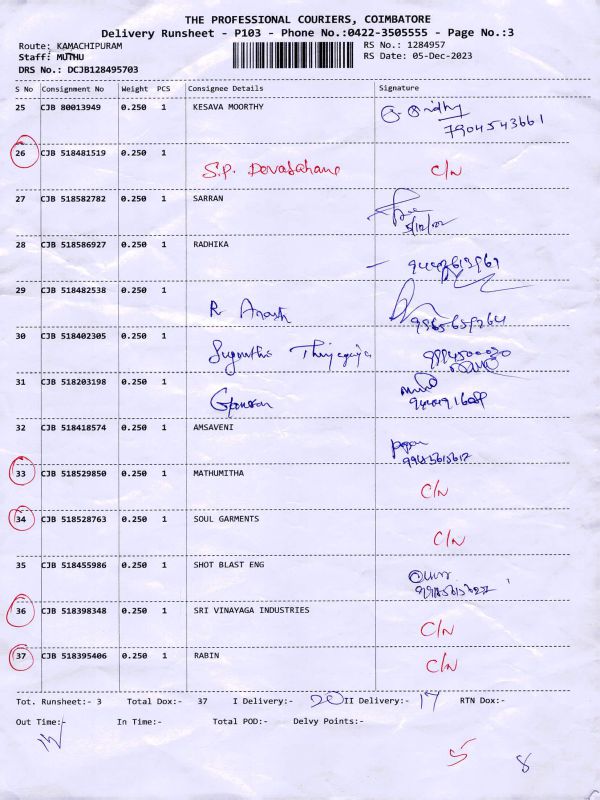 THE PROFESSIONAL COURIERS, COIMBATORE
Delivery Runsheet - P103 - Phone No.:0422-3505555 - Page No.:3
Route: KAMACHIPURAM RS No.: 1284957
Staff: MUTHU RS Date: 05-Dec-2023
DRS No.: DCJB128495703
S No Consignment No Weight PCS Consignee Details Signature
25 CJB 80013949 0.250 1 KESAVA MOORTHY
7904543661
26 CJB 518481519 0.250 1
S.P. Devasahane C/N
27 CJB 518582782 0.250 1 SARRAN
28 CJB 518586927 0.250 1 RADHIKA
29 CJB 518482538 0.250 1
R
30 CJB 518402305 0.250 1
31 CJB 518203198 0.250 1
32 CJB 518418574 0.250 1 AMSAVENI
33 CJB 518529850 0.250 1 MATHUMITHA
C/N
34 CJB 518528763 0.250 1 SOUL GARMENTS
C/N
35 CJB 518455986 0.250 1 SHOT BLAST ENG
36 CJB 518398348 0.250 1 SRI VINAYAGA INDUSTRIES
C/N
37 CJB 518395406 0.250 1 RABIN
C/N
Tot. Runsheet:- 3 Total Dox:- 37 I Delivery:- 20 II Delivery:- 17 RTN Dox:-
Out Time:- In Time:- Total POD:- Delvy Points:-
5 8